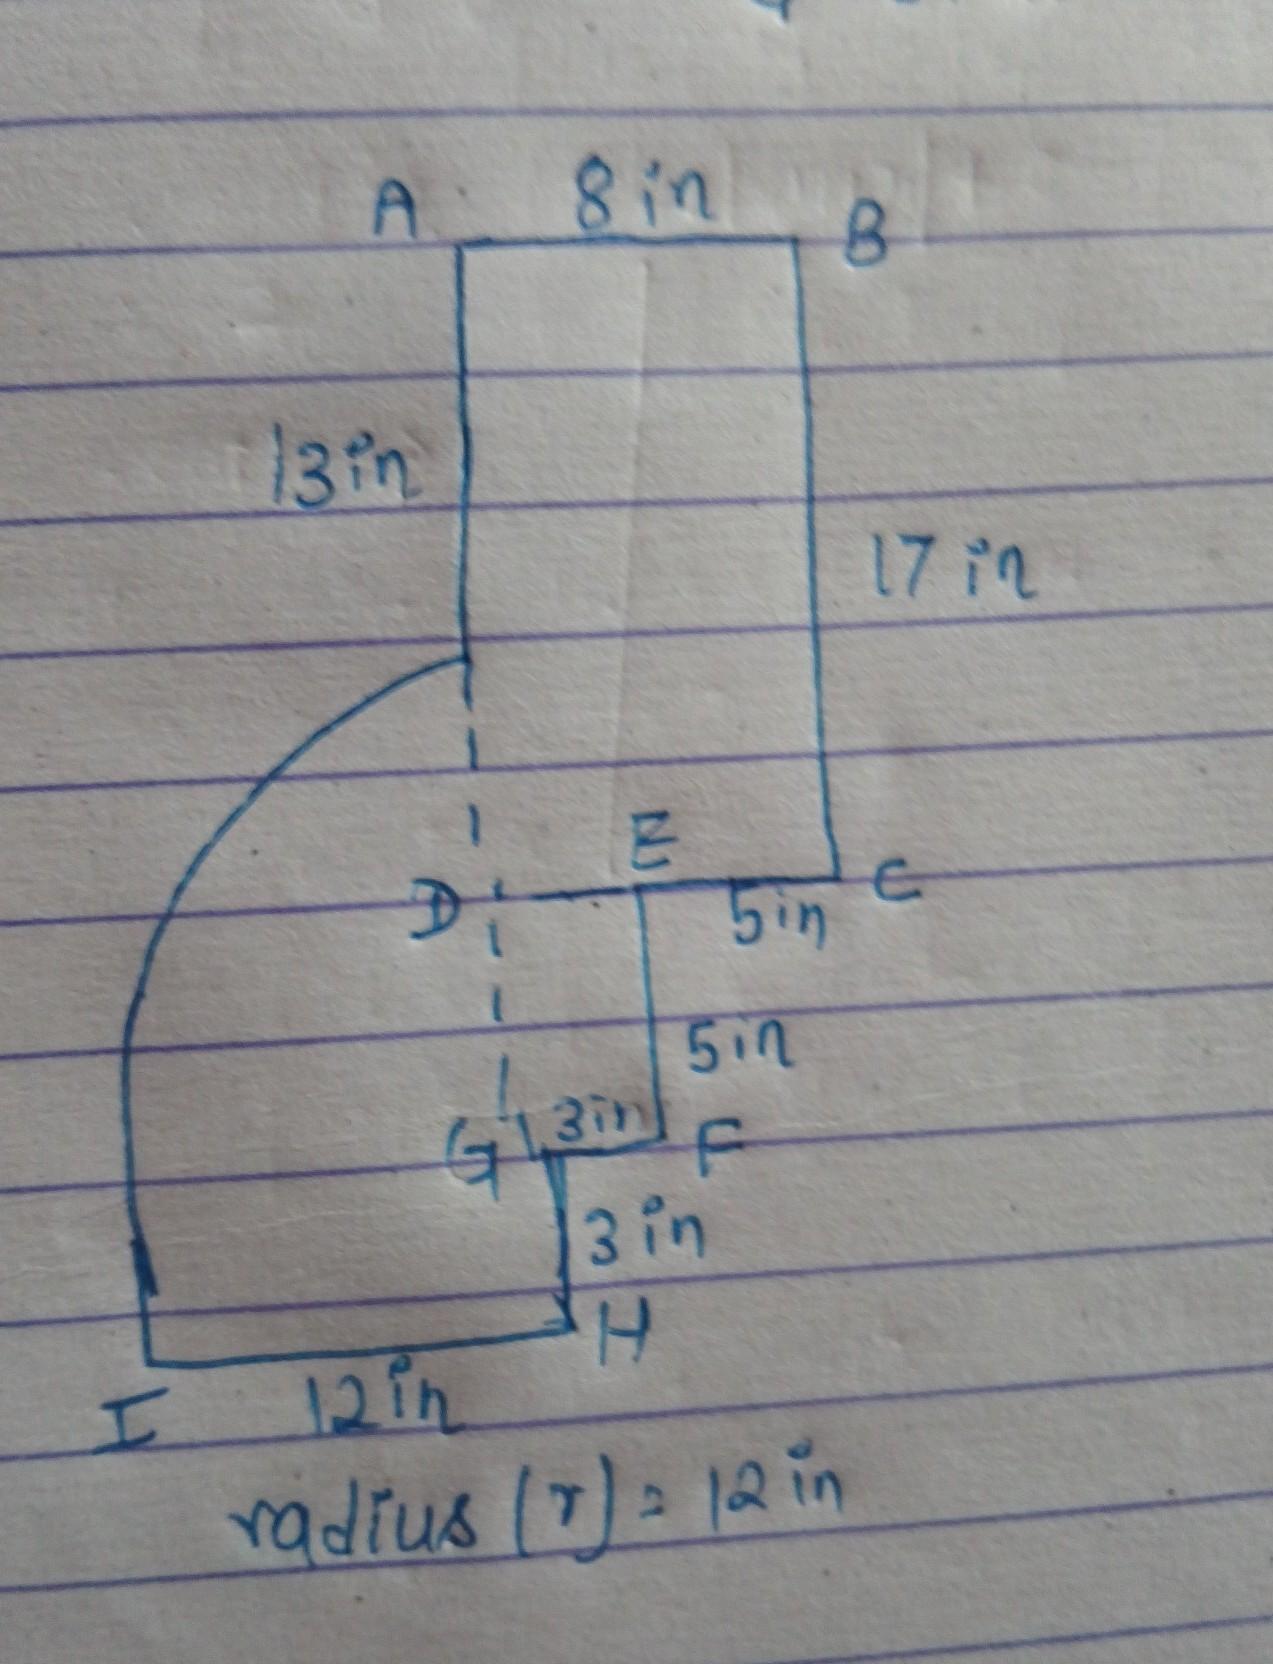 A 8 in B
13 in
17 in
E
D C
5 in
5 in
G 3 in F
3 in
H
I 12 in
radius (r) = 12 in